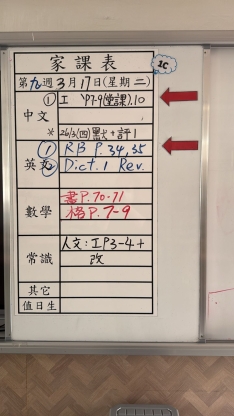 家課表
1C
第九週3月17日(星期二)
中文
① 工 P7-9(堂課).10
※ 26/3(四)默七+評1
英文
① RB P.34,35
② Dict.1 Rev.
數學
書P.70-71
格P.7-9
常識
人文:工P3-4+
改
其它
值日生